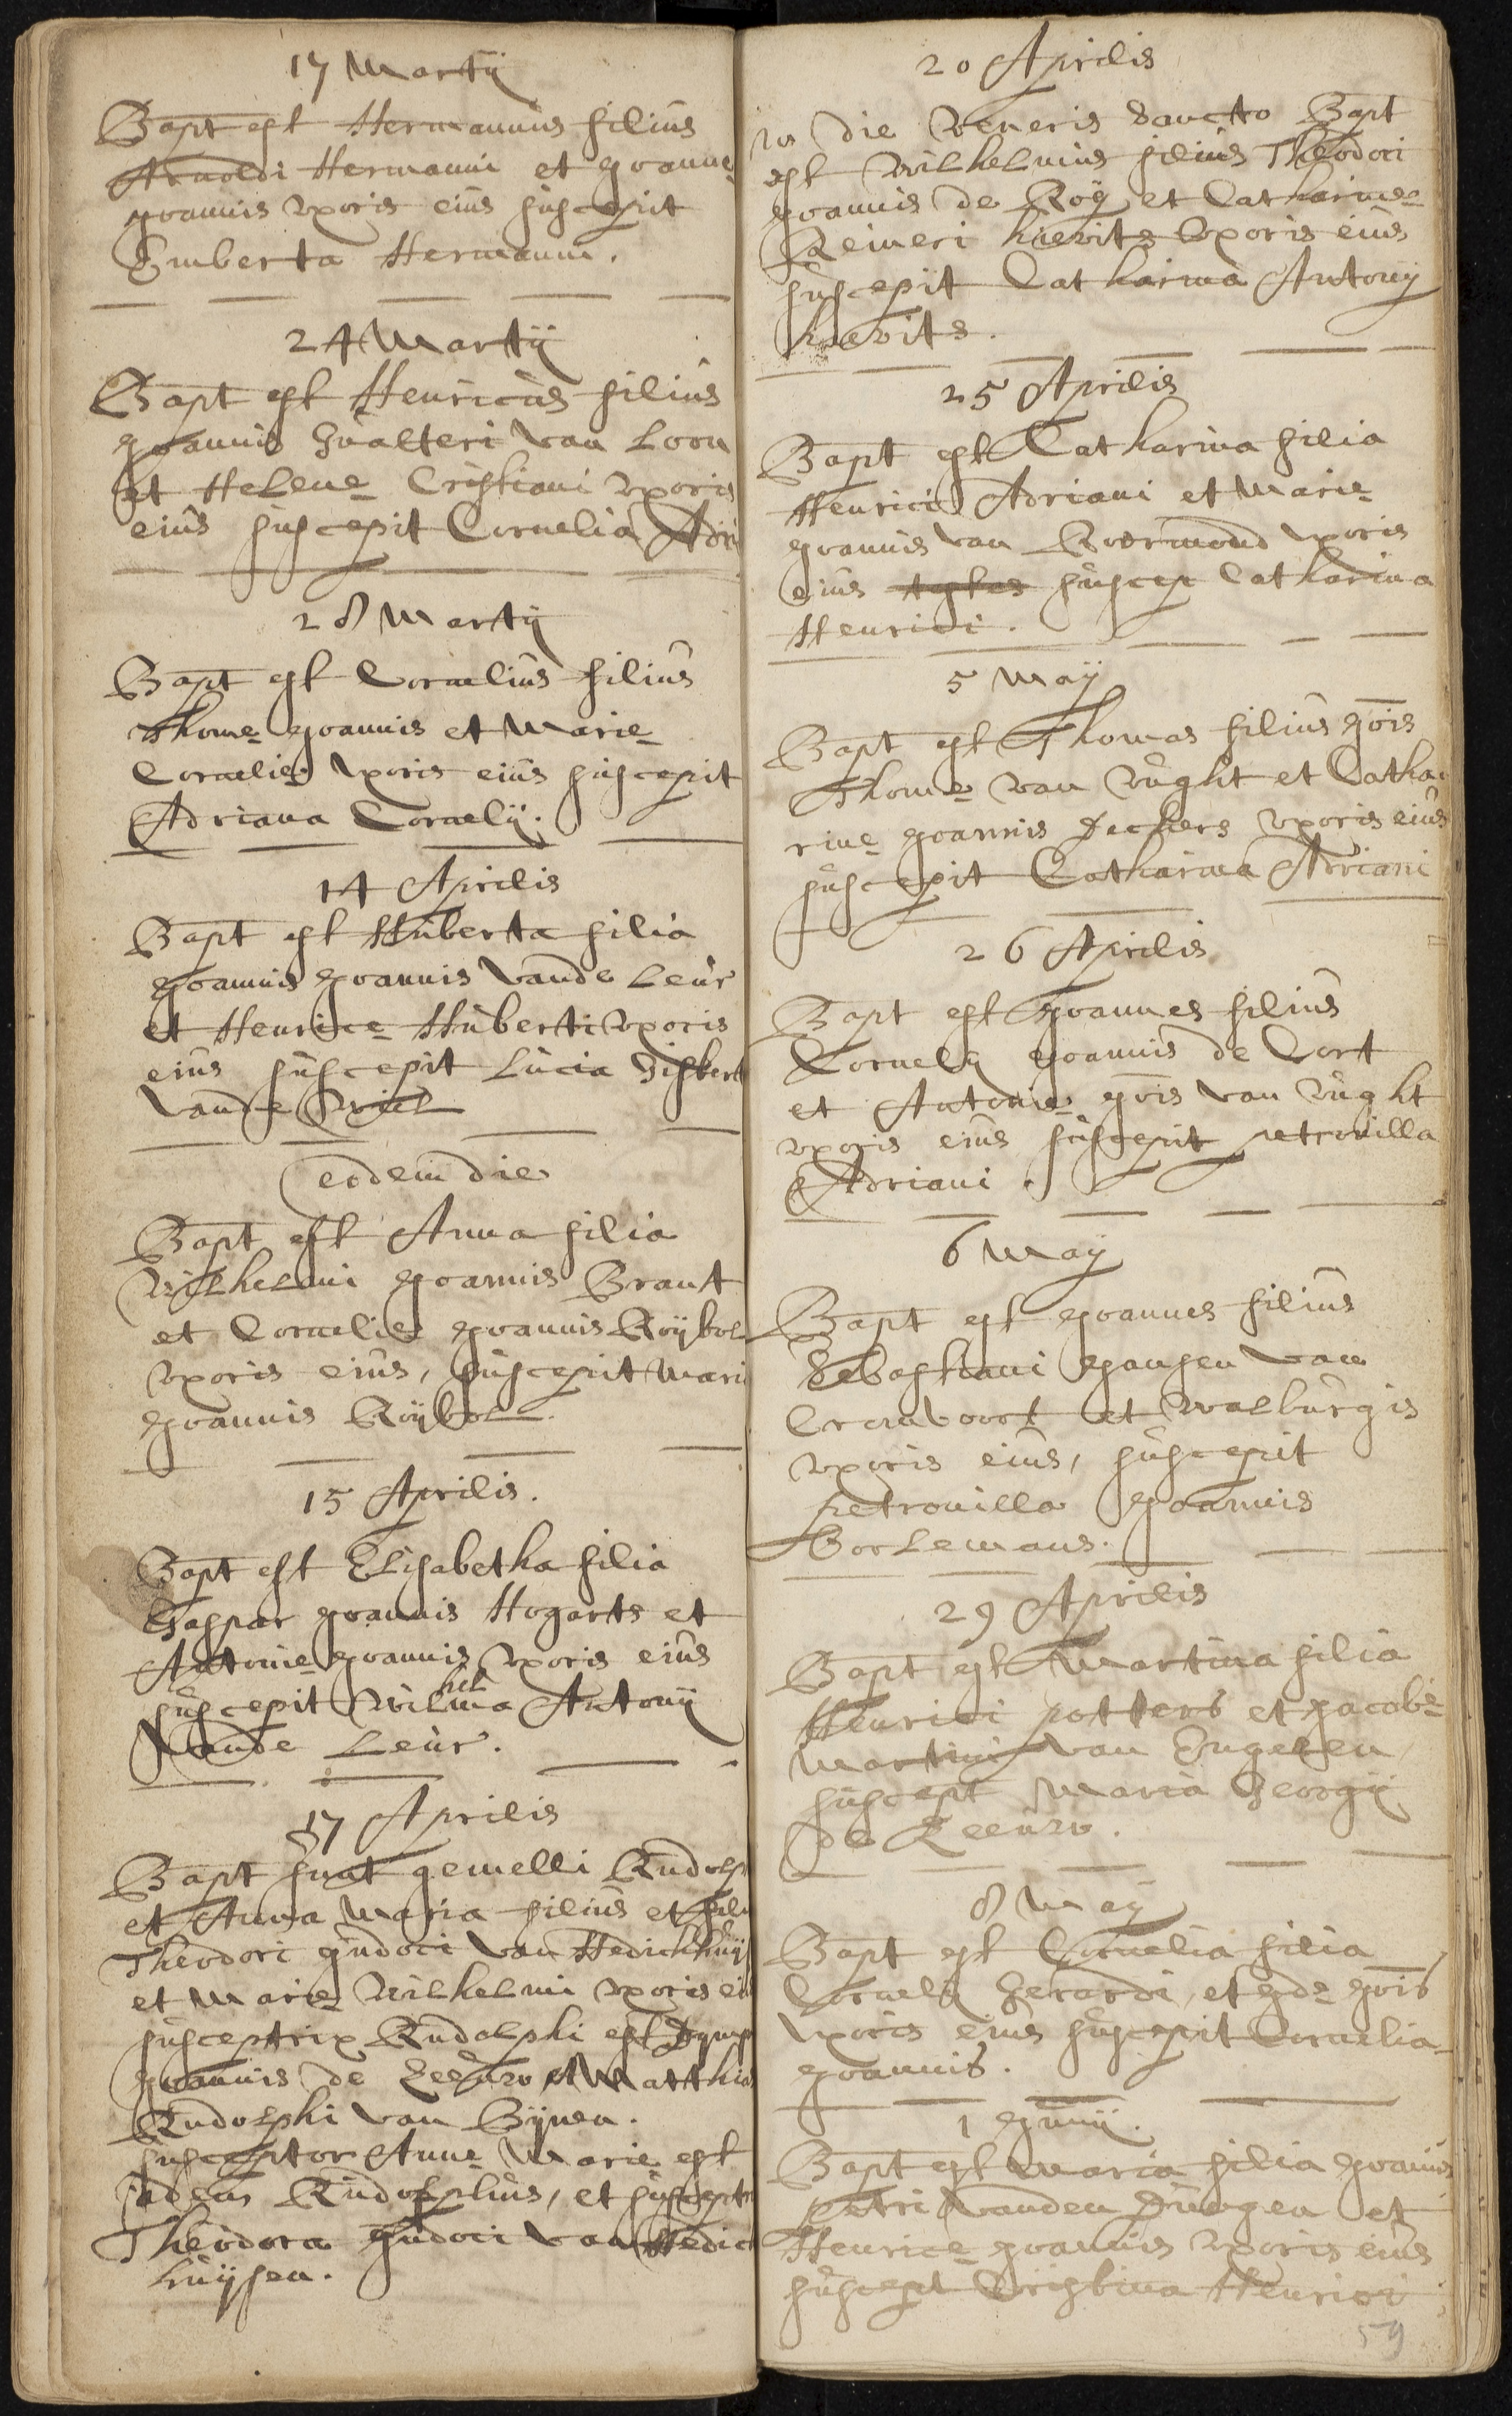 17 Martij
Bapt est Hermannus filius
Arnoldi Hermanni et Joanne
Joannis vxoris eius suscepit
Huberta Hermanni.
24 Martij
Bapt est Henricus filius
Joannis Gualteri van Loon
et Helene Cristiani vxoris
eius suscepit Cornelia Adri
28 Martij
Bapt est Cornelius filius
Thome Joannis et Marie
Cornelie vxoris eius suscepit
Adriana Cornelij.
14 Aprilis
Bapt est Huberta filia
Joannis Joannis vande Leur
et Henrice Huberti vxoris
eius suscepit Lucia Gisbert
vande Wiel
eodem die
Bapt est Anna filia
Wilhelmi Joannis Brant
et Cornelie Joannis Roijbol
vxoris eius, suscepit Mari
Joannis Roijbol.
15 Aprilis.
Bapt est Elisabetha filia
Caspar Joannis Hogarts et
Antonie Joannis vxoris eius
suscepit Wilhelma Antonij
vande Leur.
17 Aprilis
Bapt sunt gemelli Rudolp
et Anna Maria filius et fili
Theodori Judoci van Hedichhuij
et Marie Wilhelmi vxoris ei
susceptrix Rudolphi est Dymp
Joannis de Zeeuw et Matthi
Rudolphi van Bijnen.
susceptor Anne Marie est
idem Rudolphus, et susceptr
Theodora Judoci van Hedic
huijsen.
20 Aprilis
die Veneris Sancto Bapt
est Wilhelmus filius Theodori
Joannis de Roij et Catharine
Reineri kievits vxoris eius
suscepit Catharina Antonij
kievits.
25 Aprilis
Bapt est Catharina filia
Henrici Adriani et Marie
Joannis van Roermond vxoris
eius testes suscep Catharina
Henrici.
5 Maij
Bapt est Thomas filius Jois
Thome van Vught et Catha
rine Joannis Deckers vxoris eius
suscepit Catharina Adriani
26 Aprilis
Bapt est Joannes filius
Cornelij Joannis de Cort
et Antonie Jois van Vught
vxoris eius suscepit petronilla
Adriani.
6 Maij
Bapt est Joannes filius
Sebastiani Jansen van
Cromvoort et Walburgis
vxoris eius, suscepit
petronilla Joannis
Borlemans.
29 Aprilis
Bapt est Martina filia
Henrici potters et Jacobe
Martini van Engelen,
suscept Maria Georgij
de Zeeuw.
8 Maij
Bapt est Cornelia filia
Cornelij Gerardi, et Jde Jois
vxoris eius suscepit Cornelia
Joannis.
1 Junij.
Bapt est Maria filia Joannis
petri vanden Dungen et
Henrice Joannis vxoris eius
suscept Cristina Henrici
59